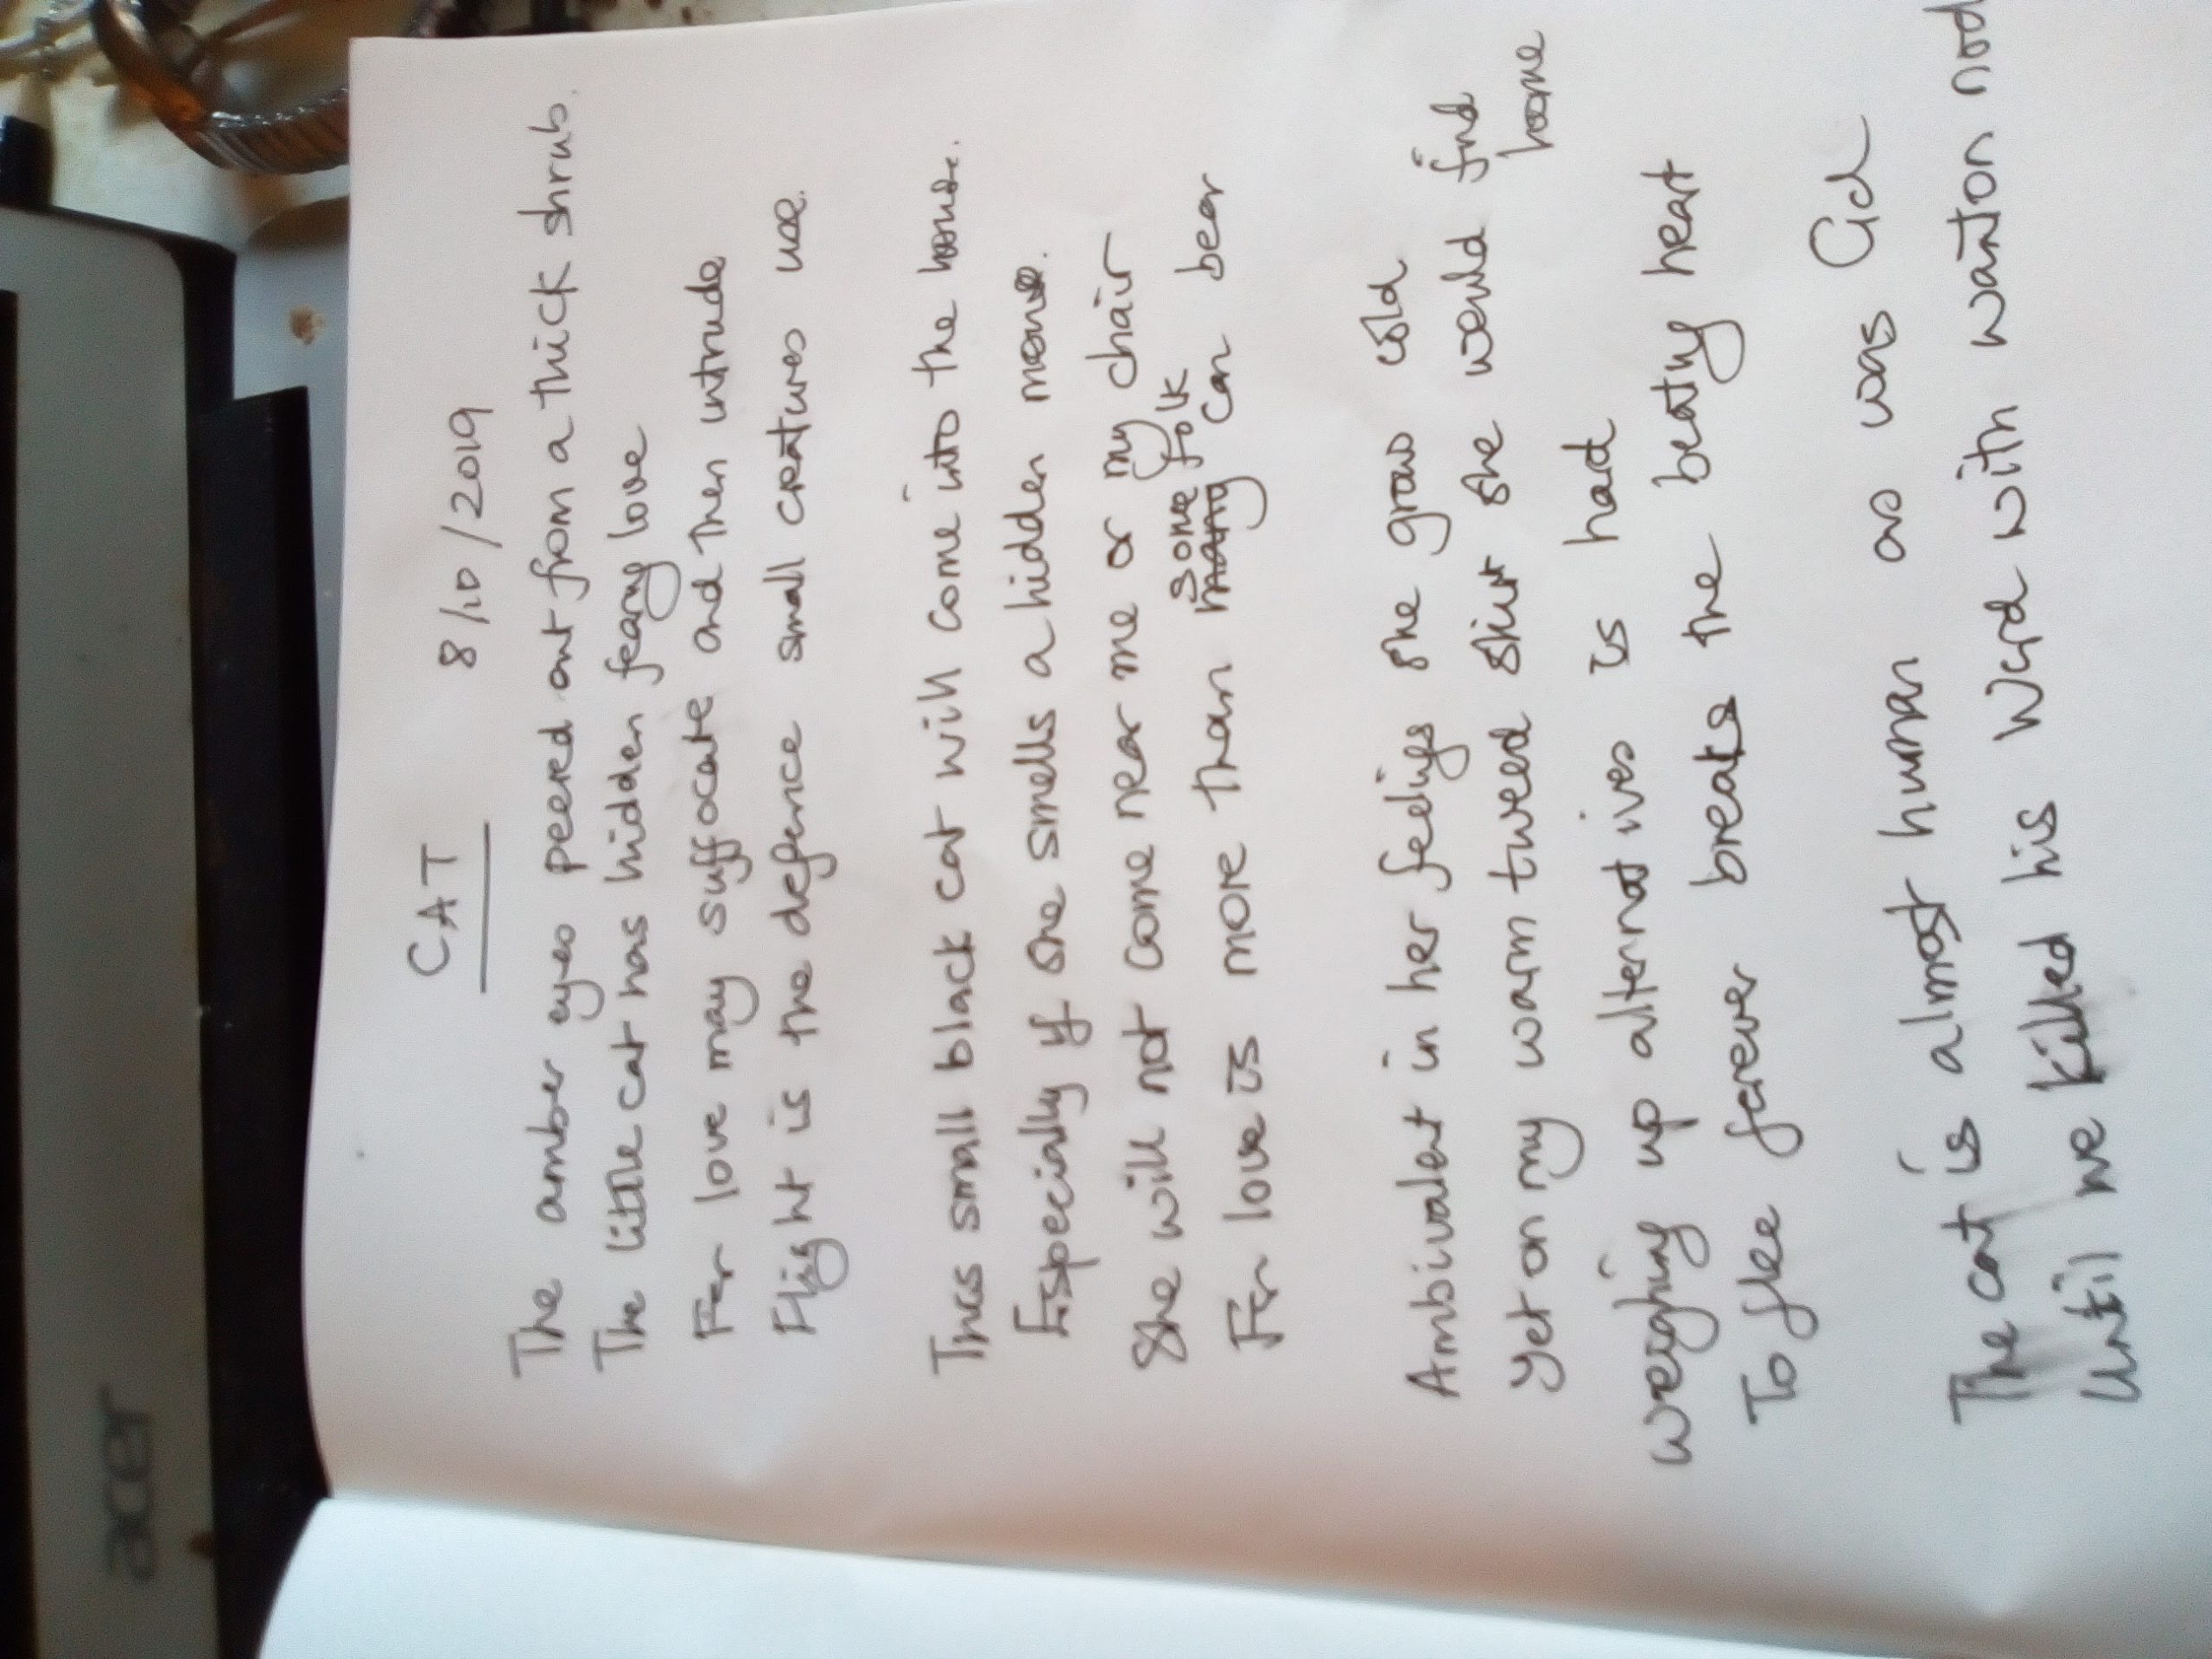 acer
CAT
8/10/2019
The amber eyes peered out from a thick shrub.
The little cat has hidden fearing love
For love may suffocate and then intrude
Flight is the defence small creatures use.
This small black cat will come into the house.
Especially if she smells a hidden mouse.
She will not come near me or my chair
some folk
For love is more than many can bear
Ambivalent in her feelings she grows cold
Yet on my warm tweed skirt she would find
home
Weighing up alternatives is hard
To flee forever breaks the beating heart
The cat is almost human as was God
Until we killed his Word with wanton nod